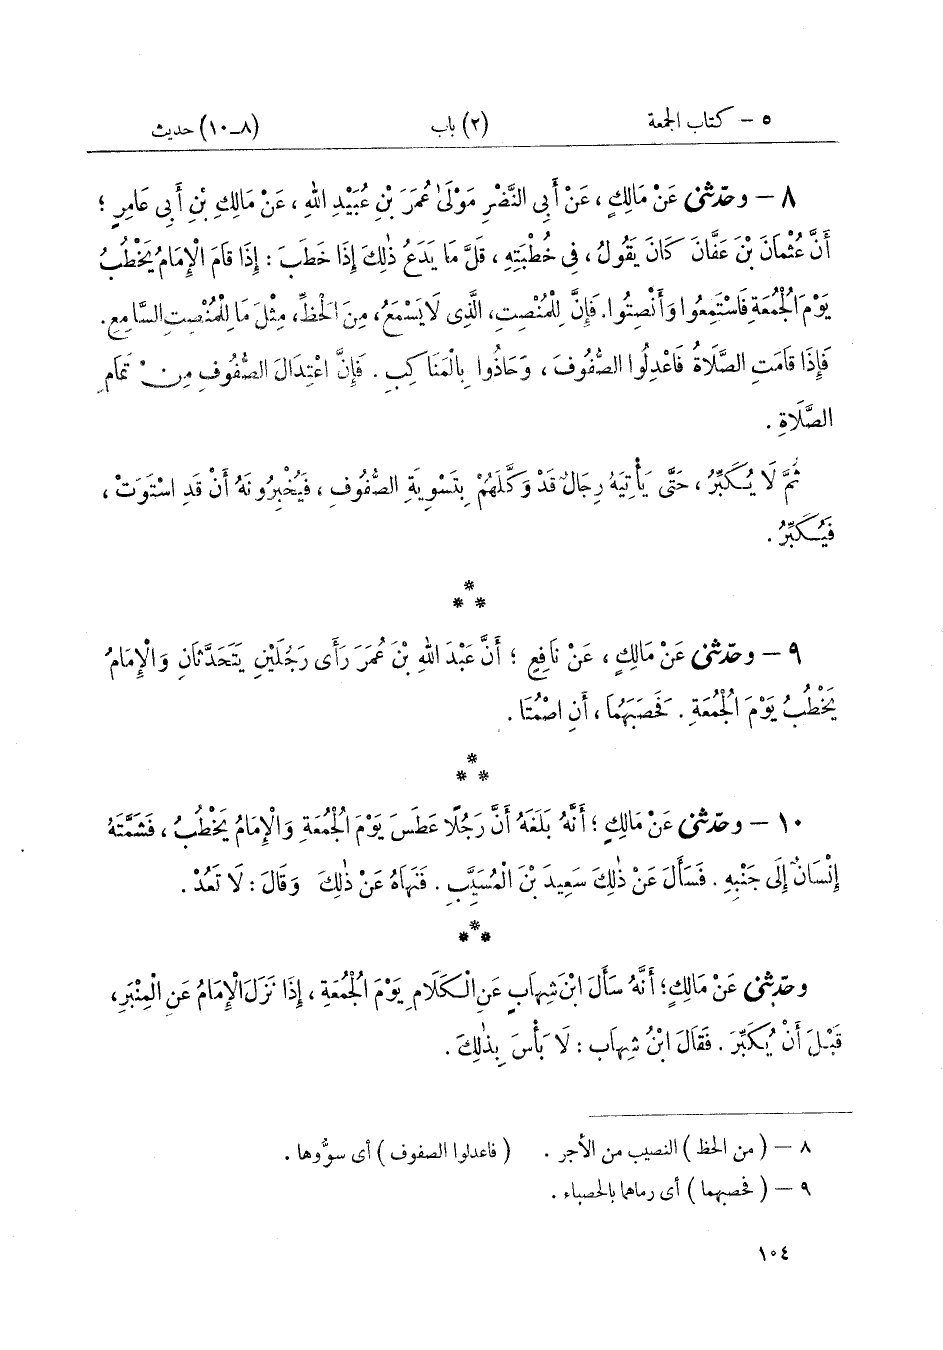 ٥ - كتاب الجمعة (٢) باب (٨-١٠) حديث
٨ - وحدّثنى عَنْ مَالِكٍ ، عَنْ أَبِى النَّضْرِ مَوْلَىٰ عُمَرَ بْنِ عُبَيْدِ اللهِ ، عَنْ مَالِكِ بْنِ أَبِى عَامِرٍ ؛
أَنَّ عُثْمَانَ بْنَ عَفَّانَ كَانَ يَقُولُ ، فِى خُطْبَتِهِ ، قَلَّ مَا يَدَعُ ذٰلِكَ إِذَا خَطَبَ : إِذَا قَامَ الْإِمَامُ يَخْطُبُ
يَوْمَ الْجُمُعَةِ فَاسْتَمِعُوا وَأَنْصِتُوا. فَإِنَّ لِلْمُنْصِتِ، الَّذِى لَا يَسْمَعُ، مِنَ الْحَظِّ، مِثْلَ مَا لِلْمُنْصِتِ السَّامِعِ.
فَإِذَا قَامَتِ الصَّلَاةُ فَاعْدِلُوا الصُّفُوفَ ، وَحَاذُوا بِالْمَنَاكِبِ . فَإِنَّ اعْتِدَالَ الصُّفُوفِ مِنْ تَمَامِ
الصَّلَاةِ .
ثُمَّ لَا يُكَبِّرُ ، حَتَّى يَأْتِيَهُ رِجَالٌ قَدْ وَكَّلَهُمْ بِتَسْوِيَةِ الصُّفُوفِ ، فَيُخْبِرُونَهُ أَنْ قَدِ اسْتَوَتْ ،
فَيُكَبِّرُ .
*
* *
٩ - وحدّثنى عَنْ مَالِكٍ ، عَنْ نَافِعٍ ؛ أَنَّ عَبْدَ اللهِ بْنَ عُمَرَ رَأَى رَجُلَيْنِ يَتَحَدَّثَانِ وَالْإِمَامُ
يَخْطُبُ يَوْمَ الْجُمُعَةِ . فَحَصَبَهُمَا ، أَنِ اصْمُتَا .
*
* *
١٠ - وحدّثنى عَنْ مَالِكٍ ؛ أَنَّهُ بَلَغَهُ أَنَّ رَجُلًا عَطَسَ يَوْمَ الْجُمُعَةِ وَالْإِمَامُ يَخْطُبُ ، فَشَمَّتَهُ
إِنْسَانٌ إِلَى جَنْبِهِ . فَسَأَلَ عَنْ ذٰلِكَ سَعِيدَ بْنَ الْمُسَيَّبِ . فَنَهَاهُ عَنْ ذٰلِكَ وَقَالَ : لَا تَعُدْ .
*
* *
وحدّثنى عَنْ مَالِكٍ؛ أَنَّهُ سَأَلَ ابْنَ شِهَابٍ عَنِ الْكَلَامِ يَوْمَ الْجُمُعَةِ ، إِذَا نَزَلَ الْإِمَامُ عَنِ الْمِنْبَرِ،
قَبْلَ أَنْ يُكَبِّرَ . فَقَالَ ابْنُ شِهَابٍ : لَا بَأْسَ بِذٰلِكَ .
٨ - ( من الحظ ) النصيب من الأجر . ( فاعدلوا الصفوف ) أى سوُّوها .
٩ - ( فحصبهما ) أى رماهما بالحصباء .
١٠٤